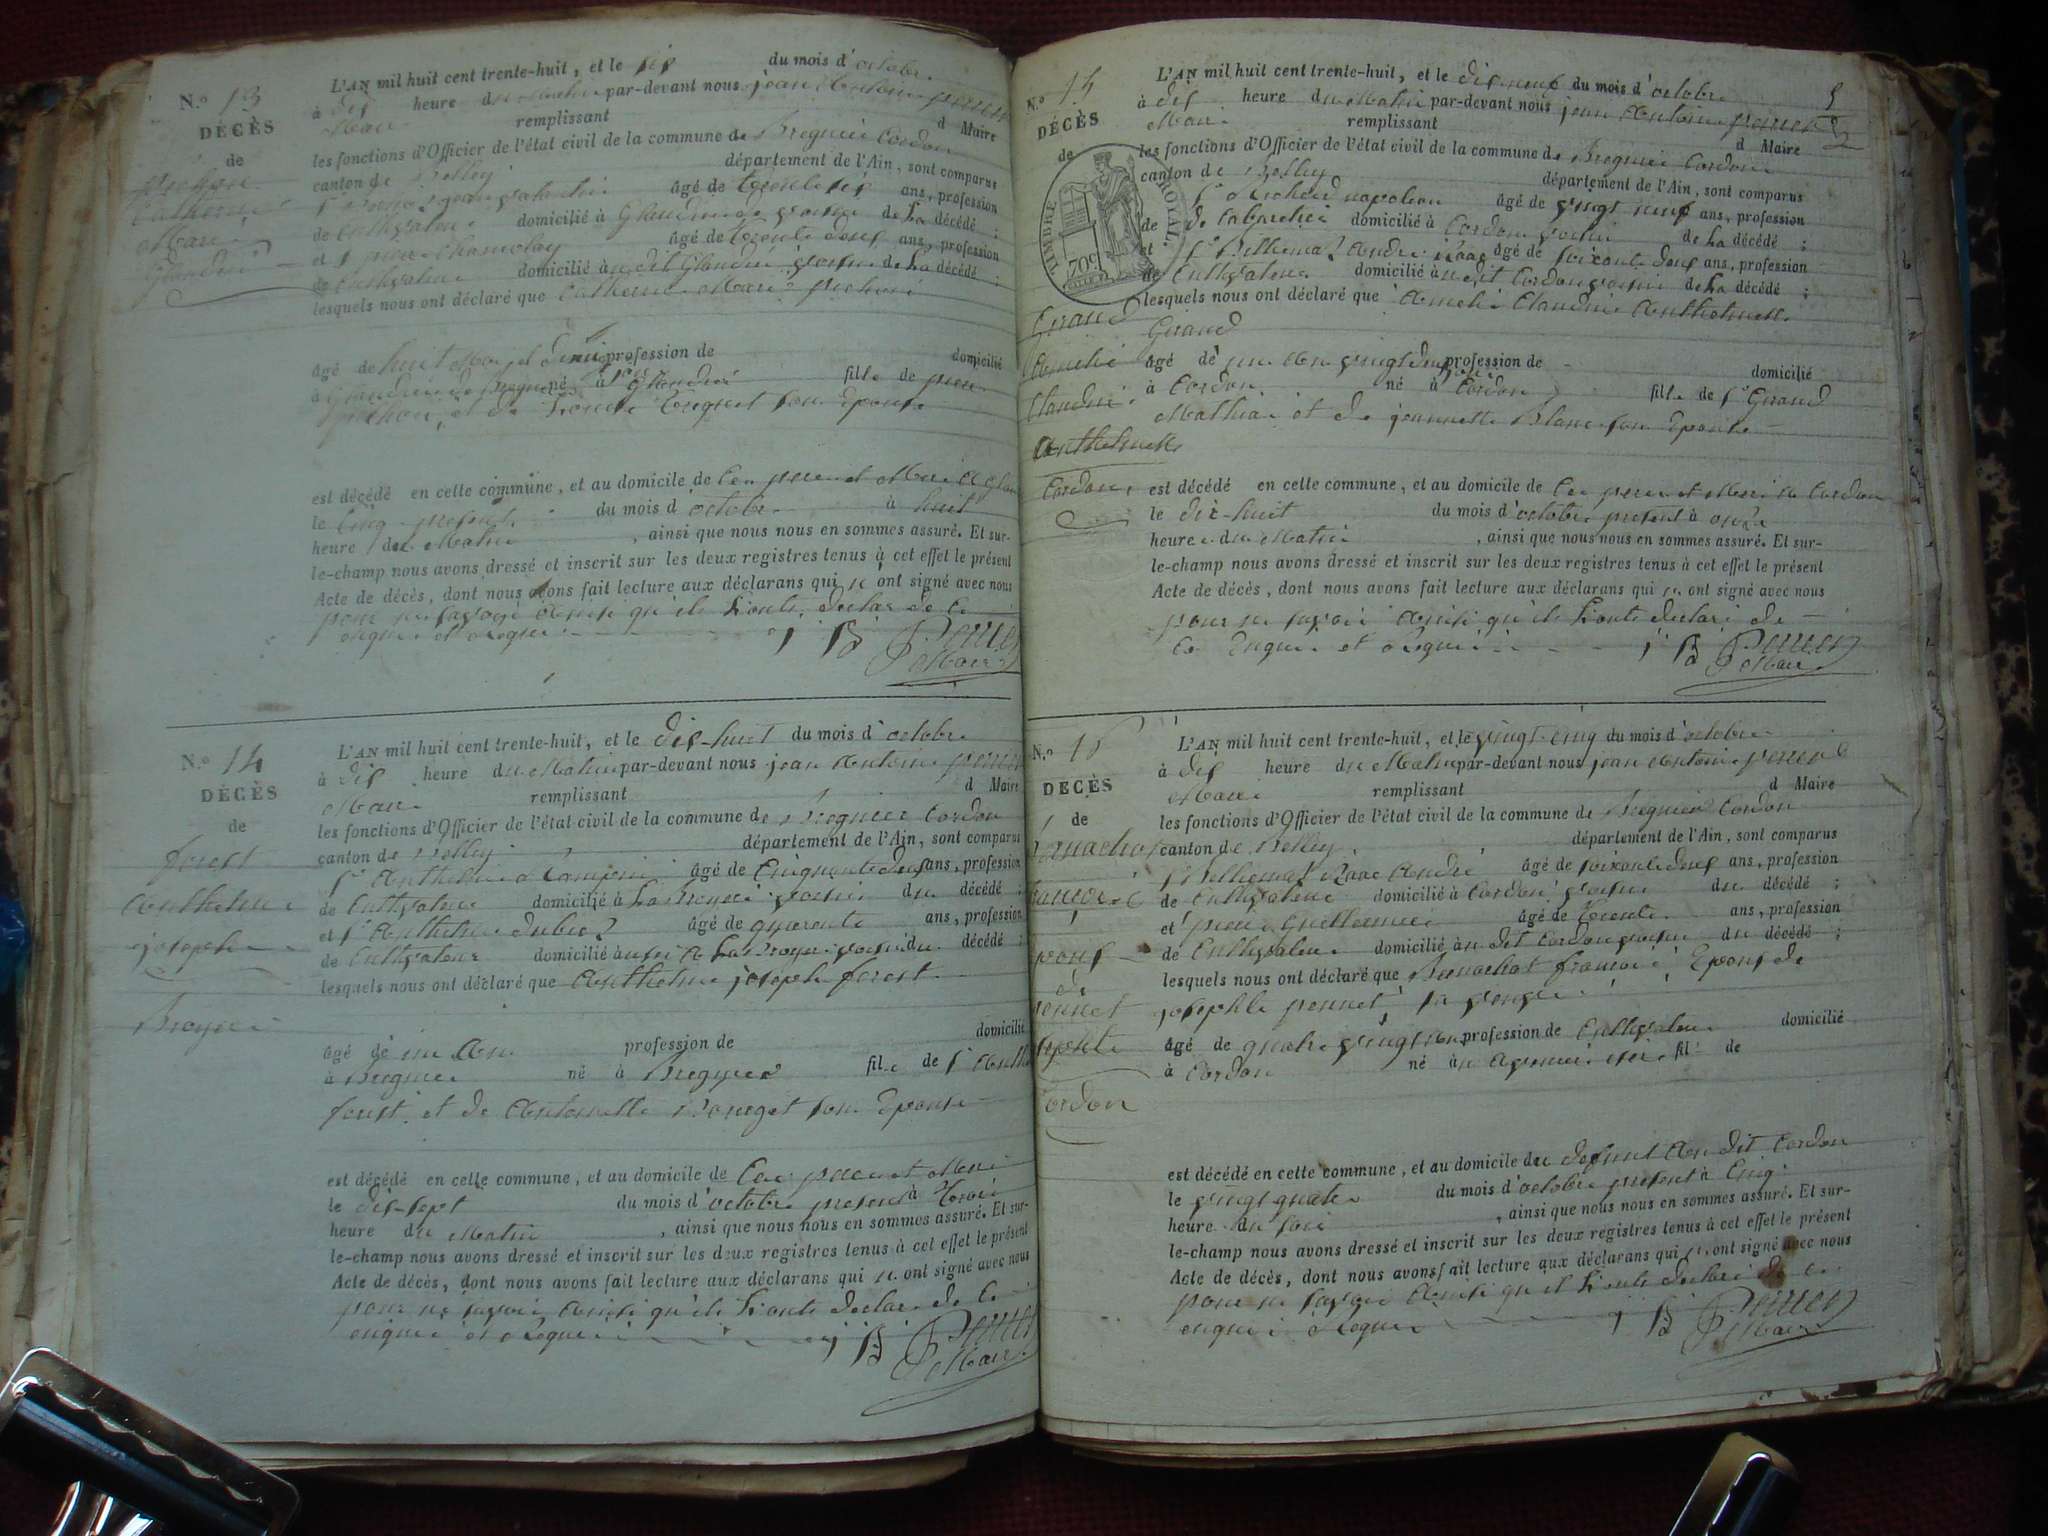 N.° 13
DÉCÈS
de
pochon
Catherine
Marie
Glandieu
L'AN mil huit cent trente-huit, et le six du mois d'octobre
à dix heure du Matin par-devant nous jean Antoine
Maire remplissant d Maire
les fonctions d'Officier de l'état civil de la commune de Bregnier Cordon
canton de Belley département de l'Ain, sont comparus
âgé de trente six ans, profession
de Cultivateur domicilié à Glandieu voisin de La décédé ;
et âgé de trente deux ans, profession
de Cultivateur domicilié au dit Glandieu voisin de La décédé ;
lesquels nous ont déclaré que Catherine Marie pochon
âgé de huit Mois et demi profession de domicilié
à Glandieu né à Glandieu fille de pierre
pochon, et de son Epouse
est décédé en cette commune, et au domicile de Ces pere et Mere a
le Cinq present du mois d'octobre à huit
heure du Matin , ainsi que nous nous en sommes assuré. Et sur-
le-champ nous avons dressé et inscrit sur les deux registres tenus à cet effet le présent
Acte de décès, dont nous avons fait lecture aux déclarans qui n'ont signé avec nous
pour ne savoir Ainsi qu'ils L'ont declaré de Ce
enquis et requis
Maire
N.° 14
DÉCÈS
de
forest
Anthelme
joseph
Bregnier
L'AN mil huit cent trente-huit, et le dix-huit du mois d'octobre
à dix heure du Matin par-devant nous jean Antoine
Maire remplissant d Maire
les fonctions d'Officier de l'état civil de la commune de Bregnier Cordon
canton de Belley département de l'Ain, sont comparus
Sr Anthelme âgé de Cinquante deux ans, profession
de Cultivateur domicilié à voisin du décédé ;
et Sr Anthelme âgé de quarante ans, profession
de Cultivateur domicilié aussi a voisin du décédé ;
lesquels nous ont déclaré que Anthelme joseph forest
âgé de un An profession de domicilié
à Bregnier né à Bregnier fils de Sr
forest et de Antoinette son Epouse
est décédé en cette commune, et au domicile de Ces pere et Mere
le dix-sept du mois d'octobre present à trois
heure du Matin , ainsi que nous nous en sommes assuré. Et sur-
le-champ nous avons dressé et inscrit sur les deux registres tenus à cet effet le présent
Acte de décès, dont nous avons fait lecture aux déclarans qui n'ont signé avec nous
pour ne savoir Ainsi qu'ils L'ont declaré de Ce
enquis et requis
Maire
5
N.° 15
DÉCÈS
de
TIMBRE ROYAL.
Giraud
Amelie
Claudine
Anthelmette
Cordon
L'AN mil huit cent trente-huit, et le dix neuf du mois d'octobre
à dix heure du Matin par-devant nous jean Antoine
Maire remplissant d Maire
les fonctions d'Officier de l'état civil de la commune de Bregnier Cordon
canton de Belley département de l'Ain, sont comparus
Sr napoleon âgé de vingt neuf ans, profession
de Cabaretier domicilié à Cordon voisin de La décédé ;
et Sr André Izaac âgé de soixante deux ans, profession
de Cultivateur domicilié au dit Cordon voisin de La décédé ;
lesquels nous ont déclaré que Amelie Claudine Anthelmette
Giraud
âgé de un An profession de domicilié
à Cordon né à Cordon fille de Sr Giraud
Mathias et de jeannette Blanc son Epouse
est décédé en cette commune, et au domicile de Ces pere et Mere a Cordon
le dix-huit du mois d'octobre present à onze
heure du Matin , ainsi que nous nous en sommes assuré. Et sur-
le-champ nous avons dressé et inscrit sur les deux registres tenus à cet effet le présent
Acte de décès, dont nous avons fait lecture aux déclarans qui n'ont signé avec nous
pour ne savoir Ainsi qu'ils L'ont declaré de
Ce Enquis et requis
Maire
N.° 16
DÉCÈS
de
Epoux
de
pennet
josephte
Cordon
L'AN mil huit cent trente-huit, et le vingt-cinq du mois d'octobre
à dix heure du Matin par-devant nous jean Antoine
Maire remplissant d Maire
les fonctions d'Officier de l'état civil de la commune de Bregnier Cordon
canton de Belley département de l'Ain, sont comparus
Sr Izaac André âgé de soixante deux ans, profession
de Cultivateur domicilié à Cordon voisin du décédé ;
et pierre âgé de trente ans, profession
de Cultivateur domicilié au dit Cordon voisin du décédé ;
lesquels nous ont déclaré que françois Epoux de
josephte pennet
âgé de quatre vingt profession de Cultivateur domicilié
à Cordon né à fils de
est décédé en cette commune, et au domicile du defunt Au dit Cordon
le vingt quatre du mois d'octobre present à Cinq
heure du soir , ainsi que nous nous en sommes assuré. Et sur-
le-champ nous avons dressé et inscrit sur les deux registres tenus à cet effet le présent
Acte de décès, dont nous avons fait lecture aux déclarans qui n'ont signé avec nous
pour ne savoir Ainsi qu'ils L'ont declaré de Ce
enquis requis
Maire